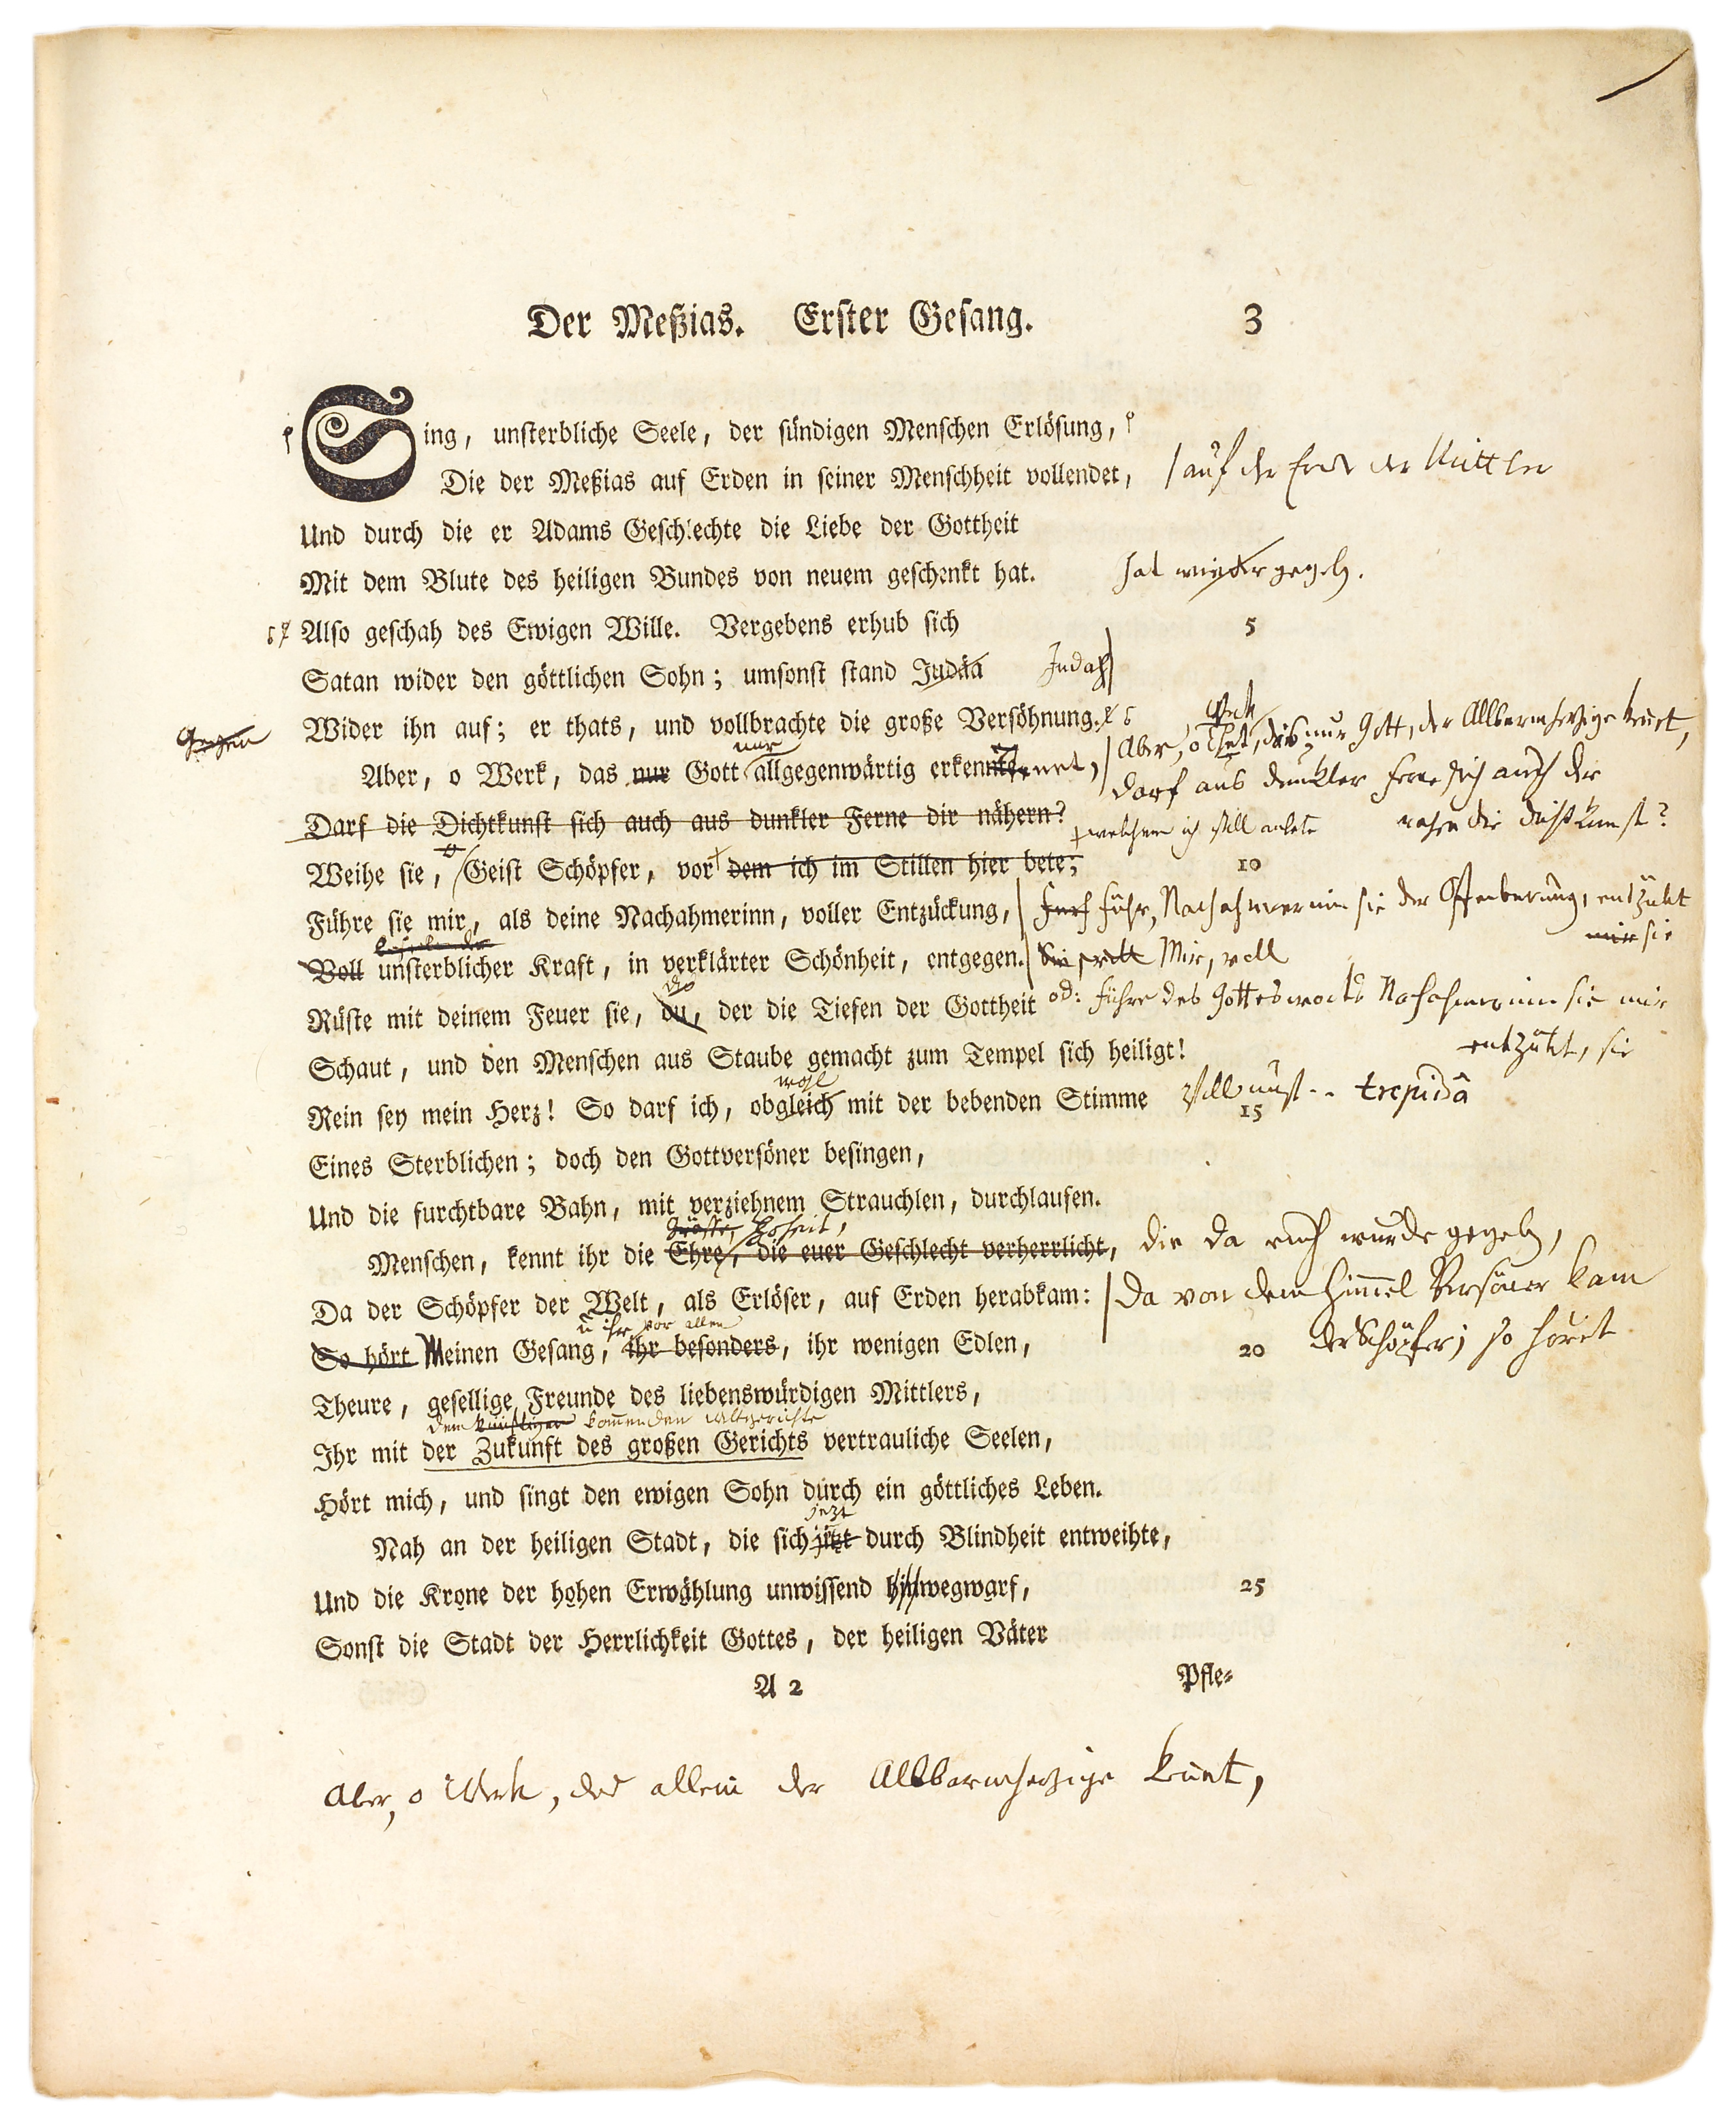 Der Meßias. Erster Gesang. 3
Sing, unsterbliche Seele, der sündigen Menschen Erlösung,
Die der Meßias auf Erden in seiner Menschheit vollendet, auf der Erde der Mittler
Und durch die er Adams Geschlechte die Liebe der Gottheit
Mit dem Blute des heiligen Bundes von neuem geschenkt hat. hat wieder gegeb.
Also geschah des Ewigen Wille. Vergebens erhub sich 5
Satan wider den göttlichen Sohn; umsonst stand Judäa Judah
Gegen Wider ihn auf; er thats, und vollbrachte die große Versöhnung.
nur
Aber, o Werk, das nur Gott allgegenwärtig erkennt, Aber, o That, die nur Gott, der Allbarmherzige kennt,
Darf aus dunkler Ferne sich auch dir
Darf die Dichtkunst sich auch aus dunkler Ferne dir nähern? welchem ich still anbete nahen die Dichtkunst?
Weihe sie, Geist Schöpfer, vor dem ich im Stillen hier bete; 10
Führe sie mir, als deine Nachahmerinn, voller Entzückung, Führ, Nachahmerinn sie der Offenbarung, entzükt
mir sie
Voll unsterblicher Kraft, in verklärter Schönheit, entgegen. Mir, voll
Rüste mit deinem Feuer sie, du, der die Tiefen der Gottheit od: führe des Gottesworts Nachahmerinn sie mir
entzükt, sie
Schaut, und den Menschen aus Staube gemacht zum Tempel sich heiligt!
wohl
Rein sey mein Herz! So darf ich, obgleich mit der bebenden Stimme trepida
15
Eines Sterblichen; doch den Gottversöner besingen,
Und die furchtbare Bahn, mit verziehnem Strauchlen, durchlaufen.
Größe, Hoheit,
Menschen, kennt ihr die Ehre, die euer Geschlecht verherrlicht, die da euch wurde gegeb,
Da der Schöpfer der Welt, als Erlöser, auf Erden herabkam: Da von dem Himmel Versöner kam
u ihr vor allen
So hört Meinen Gesang, ihr besonders, ihr wenigen Edlen, 20 der Schöpfer; so höret
Theure, gesellige Freunde des liebenswürdigen Mittlers,
dem künftigen kommenden Weltgerichte
Ihr mit der Zukunft des großen Gerichts vertrauliche Seelen,
Hört mich, und singt den ewigen Sohn durch ein göttliches Leben.
jezt
Nah an der heiligen Stadt, die sich itzt durch Blindheit entweihte,
Und die Krone der hohen Erwählung unwissend hinwegwarf, 25
Sonst die Stadt der Herrlichkeit Gottes, der heiligen Väter
A 2 Pfle-
Aber, o Werk, das allein der Allbarmherzige kennt,